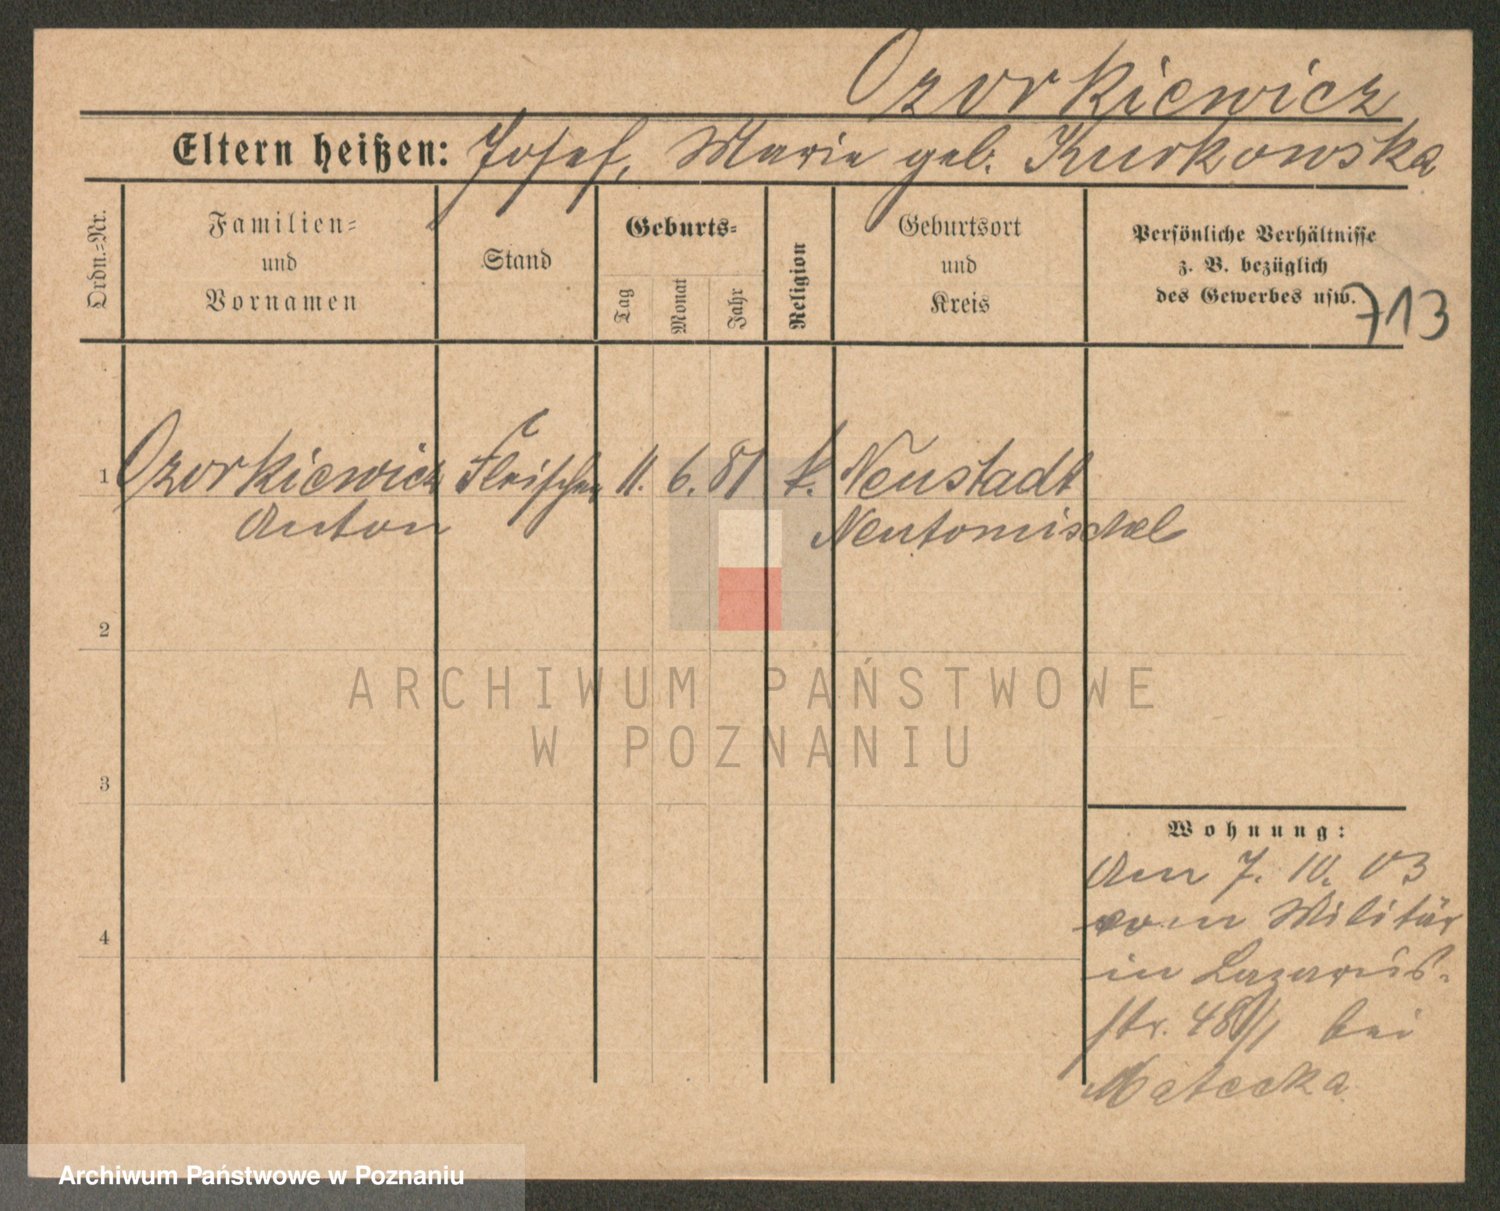 Ozorkiewicz
Eltern heißen: Josef, Marie geb. Kurkowska
Ordn.=Nr.
Familien=
und
Vornamen
Stand
Geburts=
Tag
Monat
Jahr
Religion
Geburtsort
und
Kreis
Persönliche Verhältnisse
z. B. bezüglich
des Gewerbes usw.
713
1 Ozorkiewicz Fleischer 11. 6. 81 k. Neustadt
Anton Neutomischel
2
3
4
Wohnung:
Am 7. 10. 03
vom Militär
in Lazarus-
str. 48 bei
Matecka
ARCHIWUM PAŃSTWOWE
W POZNANIU
Archiwum Państwowe w Poznaniu